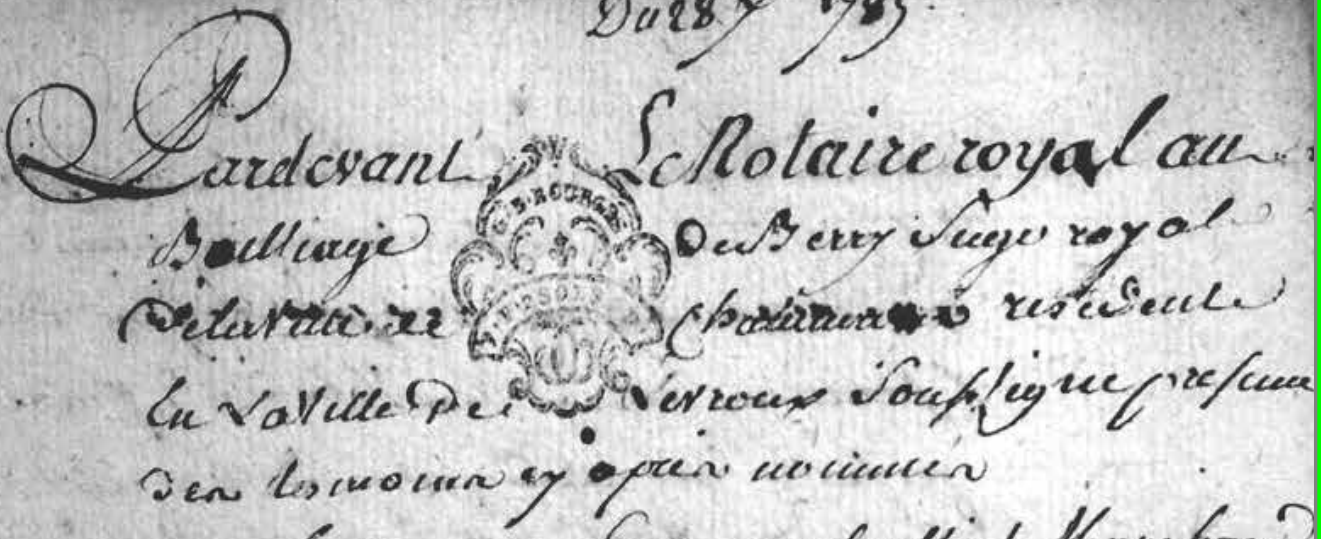 Du 28 7bre 1785
Pardevant Le Notaire royal au
Bailliage De Berry Siege royal
De la ville de Chateauroux residente
En La Ville De Levroux Soussigne presence
Des temoins cy apres nommés